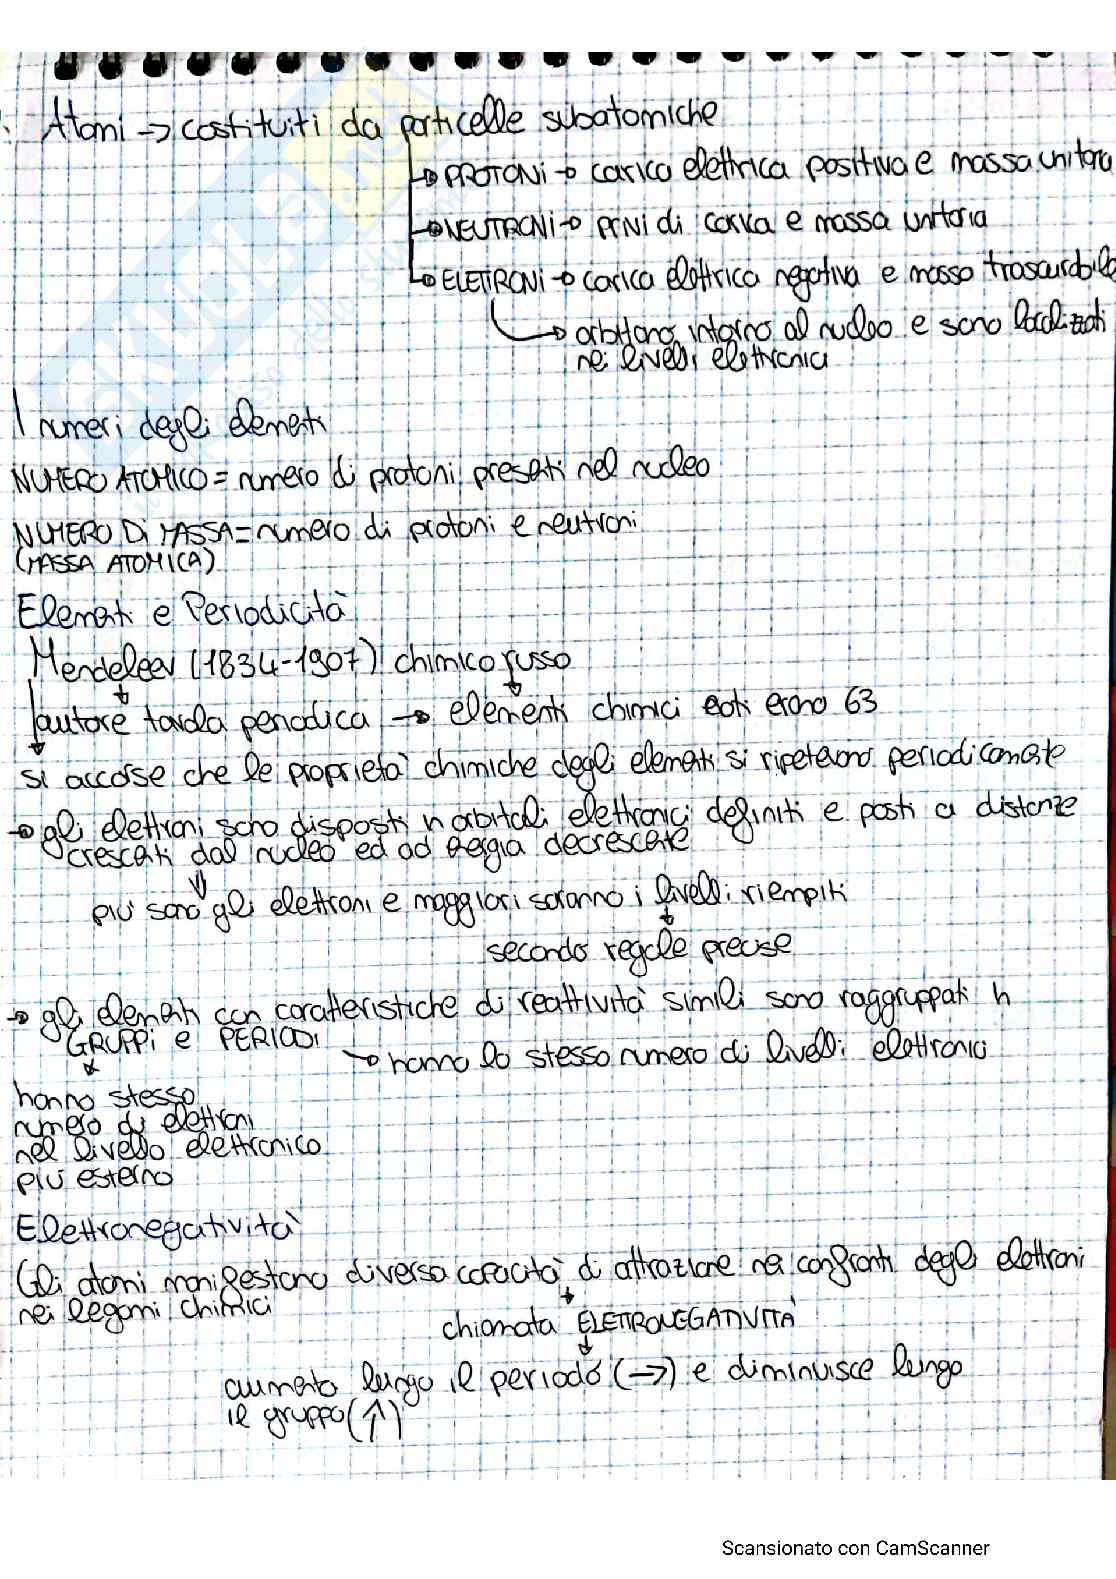 Atomi → costituiti da particelle subatomiche
→ PROTONI → carica elettrica positiva e massa unitaria
→ NEUTRONI → privi di carica e massa unitaria
→ ELETTRONI → carica elettrica negativa e massa trascurabile
→ orbitano intorno al nucleo e sono localizzati
nei livelli elettronici
I numeri degli elementi
NUMERO ATOMICO = numero di protoni presenti nel nucleo
NUMERO DI MASSA = numero di protoni e neutroni
(MASSA ATOMICA)
Elementi e Periodicità
Mendeleev (1834-1907) chimico russo
autore tavola periodica → elementi chimici noti erano 63
si accorse che le proprietà chimiche degli elementi si ripetevano periodicamente
→ gli elettroni sono disposti in orbitali elettronici definiti e posti a distanze
crescenti dal nucleo ed ad energia decrescente
più sono gli elettroni e maggiori saranno i livelli riempiti
secondo regole precise
→ gli elementi con caratteristiche di reattività simili sono raggruppati in
GRUPPI e PERIODI
→ hanno lo stesso numero di livelli elettronici
hanno stesso
numero di elettroni
nel livello elettronico
più esterno
Elettronegatività
Gli atomi manifestano diversa capacità di attrazione nei confronti degli elettroni
nei legami chimici
chiamata ELETTRONEGATIVITÀ
aumenta lungo il periodo (→) e diminuisce lungo
il gruppo (↑)
Scansionato con CamScanner